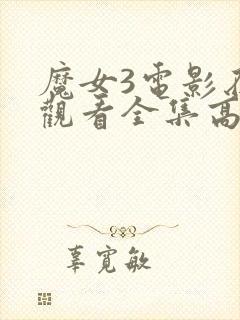 魔女3電影
觀看全集高
辜寬敏